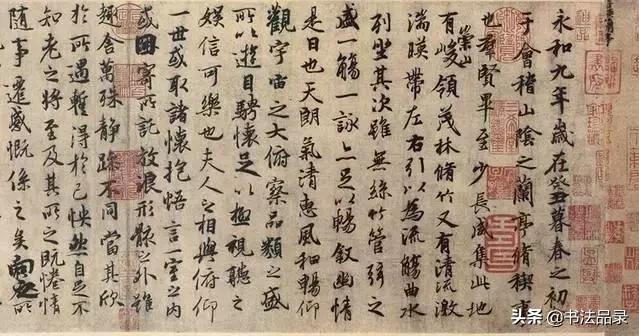 永和九年歲在癸丑暮春之初
于會稽山陰之蘭亭脩稧事
也羣賢畢至少長咸集此地
有崇山峻領茂林脩竹又有清流激
湍暎帶左右引以為流觴曲水
列坐其次雖無絲竹管弦之
盛一觴一詠亦足以暢敘幽情
是日也天朗氣清惠風和暢仰
觀宇宙之大俯察品類之盛
所以遊目騁懷足以極視聽之
娛信可樂也夫人之相與俯仰
一世或取諸懷抱悟言一室之內
或因寄所託放浪形骸之外雖
趣舍萬殊靜躁不同當其欣
於所遇暫得於己怏然自足不
知老之將至及其所之既惓情
隨事遷感慨係之矣向之所
头条 @书法品录